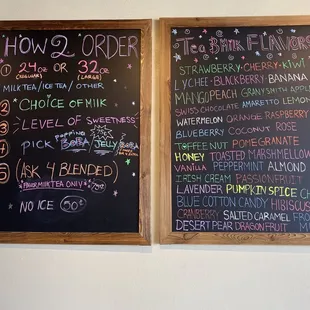 HOW 2 ORDER
1 24oz OR 32oz
(REGULAR) (LARGE)
MILK TEA/ICE TEA/ OTHER
2 CHOICE OF MILK
3 LEVEL OF SWEETNESS
4 PICK POPPING BOBA JELLY BOBA
5 (ASK 4 BLENDED)
MILK TEA ONLY
NO ICE 50¢
Tea Bank FLAVORS
STRAWBERRY CHERRY KIWI
LYCHEE BLACKBERRY BANANA
MANGO PEACH GRANY SMITH APPL
SWISS CHOCOLATE AMARETTO LEMON
WATERMELON ORANGE RASPBERRY
BLUEBERRY COCONUT ROSE
TOFFEE NUT POMEGRANATE
HONEY TOASTED MARSHMELLOW
VANILLA PEPPERMINT ALMOND
IRISH CREAM PASSIONFRUIT
LAVENDER PUMPKIN SPICE C
BLUE COTTON CANDY HIBISCUS
CRANBERRY SALTED CARAMEL FRO
DESERT PEAR DRAGONFRUIT M